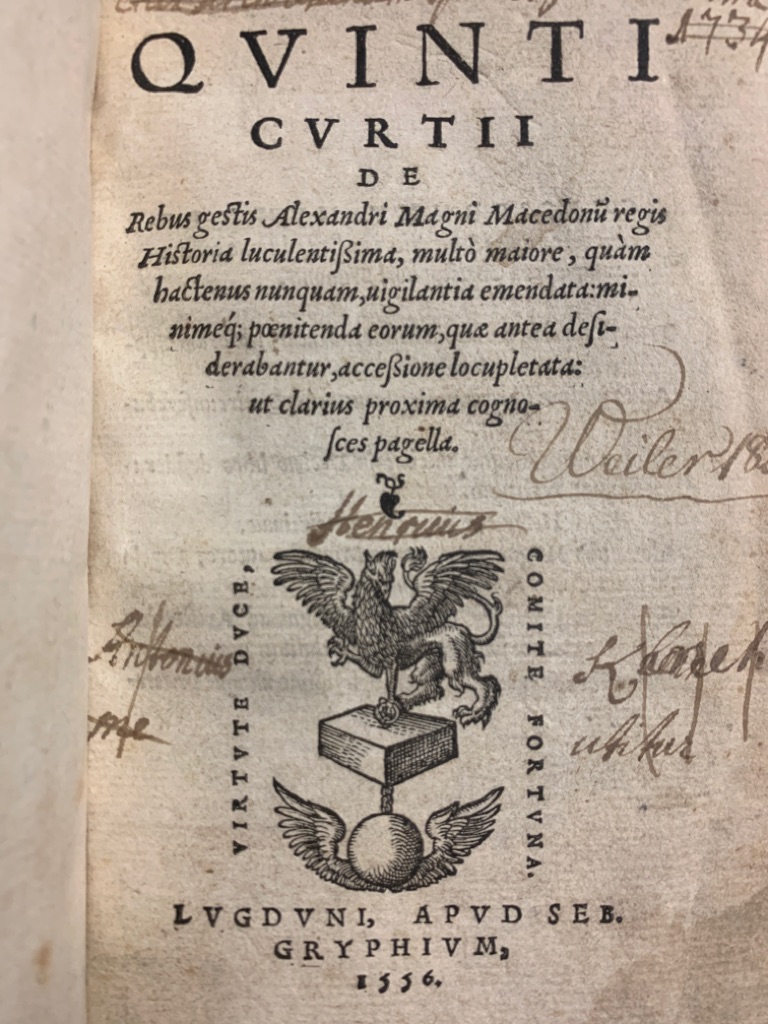 1734
QVINTI
CVRTII
DE
Rebus gestis Alexandri Magni Macedonū regis
Historia luculentißima, multò maiore, quàm
hactenus nunquam, uigilantia emendata: mi-
nimeq́; pœnitenda eorum, quæ antea desi-
derabantur, acceßione locupletata:
ut clarius proxima cogno-
sces pagella.
Weiler 18
Henricus
VIRTVTE DVCE,
COMITE FORTVNA.
Antonius
me
utitur
LVGDVNI, APVD SEB.
GRYPHIVM,
1556.